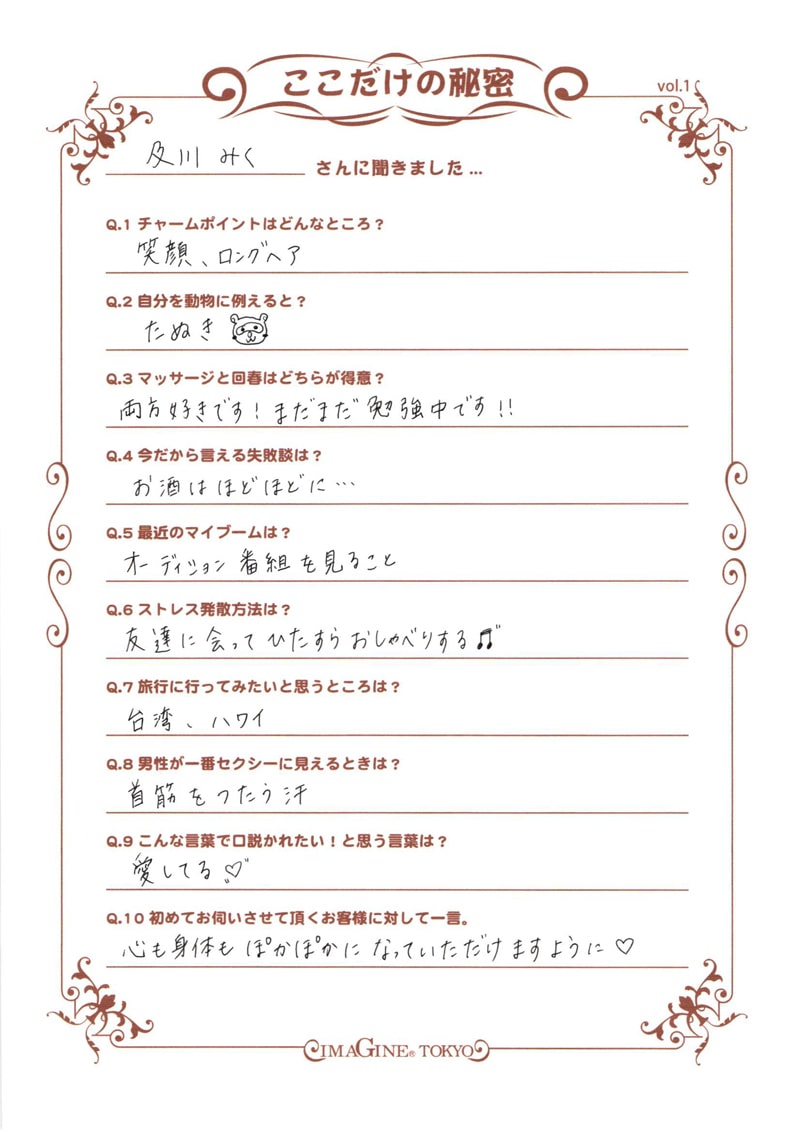 ここだけの秘密
vol.1
及川 みく さんに聞きました...
Q.1 チャームポイントはどんなところ？
笑顔、ロングヘア
Q.2 自分を動物に例えると？
たぬき
Q.3 マッサージと回春はどちらが得意？
両方好きです！まだまだ勉強中です!!
Q.4 今だから言える失敗談は？
お酒はほどほどに…
Q.5 最近のマイブームは？
オーディション番組を見ること
Q.6 ストレス発散方法は？
友達に会ってひたすらおしゃべりする♫
Q.7 旅行に行ってみたいと思うところは？
台湾、ハワイ
Q.8 男性が一番セクシーに見えるときは？
首筋をつたう汗
Q.9 こんな言葉で口説かれたい！と思う言葉は？
愛してる♡
Q.10 初めてお伺いさせて頂くお客様に対して一言。
心も身体もぽかぽかになっていただけますように♡
IMAGINE® TOKYO